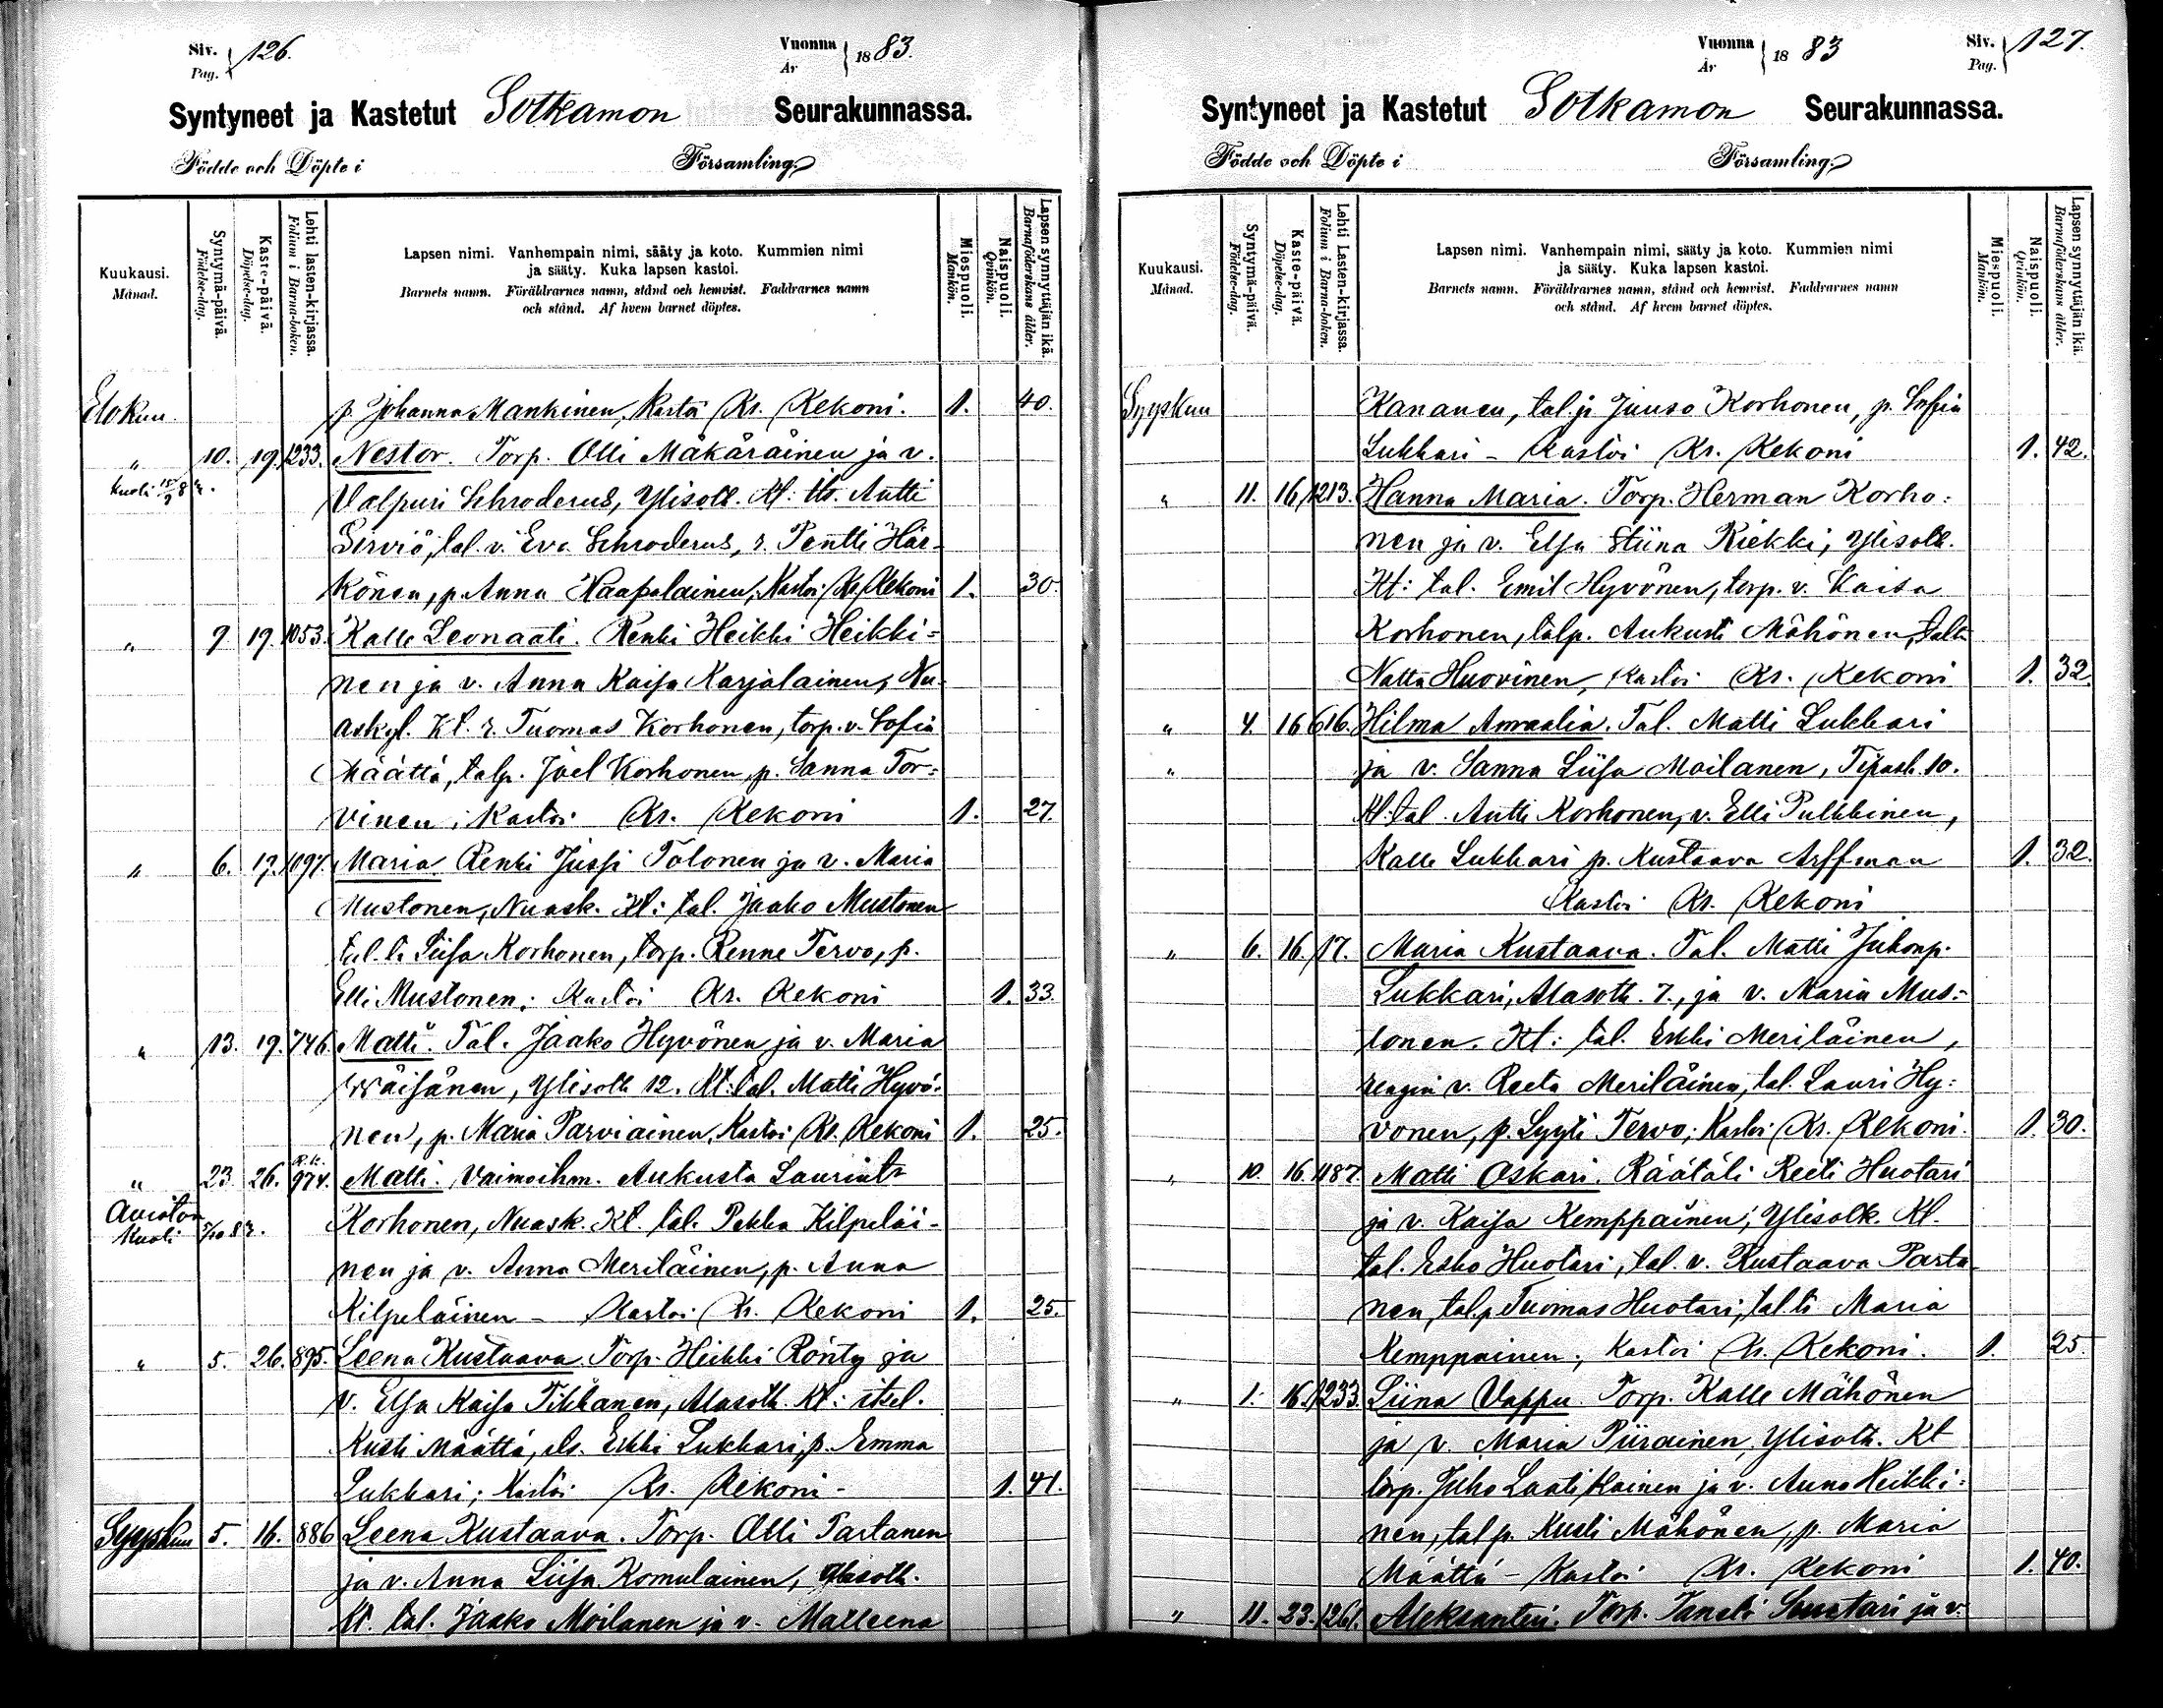 Siv. Pag. 126.
Vuonna År 1883.
Syntyneet ja Kastetut Sotkamon Seurakunnassa.
Födde och Döpte i Församling.
Kuukausi. Månad.
Syntymä-päivä. Födelse-dag.
Kaste-päivä. Döpelse-dag.
Lehti lasten-kirjassa. Folium i Barna-boken.
Lapsen nimi. Vanhempain nimi, sääty ja koto. Kummien nimi
ja sääty. Kuka lapsen kastoi.
Barnets namn. Föräldrarnes namn, stånd och hemvist. Faddrarnes namn
och stånd. Af hvem barnet döptes.
Miespuoli. Mankön.
Naispuoli. Qvinkön.
Lapsen synnyttäjän ikä. Barnaföderskans ålder.
Elokuu. p. Johanna Mankinen, Kastoi Kr. Rekoni. 1. 40.
" 10. 19. 1233. Nestor. Torp. Olli Mäkäräinen ja v.
Kuoli 15/9 83. Valpuri Schroderus, Ylisotk. Kt: tls. Antti
Serviö, tal. v. Eva Schroderus, r. Pentti Här-
könen, p. Anna Haapalainen; Kastoi Kr. Rekoni 1. 30.
" 9 19. 1053. Kalle Leonaati. Renki Heikki Heikki-
nen ja v. Anna Kaisa Karjalainen, Nu-
askyl. Kt. r. Tuomas Korhonen, torp. v. Sofia
Määttä, talp. Joel Korhonen, p. Sanna Tor-
vinen; Kastoi Kr. Rekoni 1. 27.
" 6. 17. 1097. Maria Renki Jussi Tolonen ja v. Maria
Mustonen, Nuask. Kt: tal. Jaako Mustonen
tal. t. Liisa Korhonen, torp. Renne Tervo, p.
Elli Mustonen; Kastoi Kr. Rekoni 1. 33.
" 13. 19. 746. Matti. Tal. Jaako Hyvönen ja v. Maria
Wäisänen, Ylisotk 12. Kt: tal. Matti Hyvö-
nen, p. Maria Parviainen, Kastoi Kr. Rekoni 1. 25.
" 23. 26. R.k. 974. Matti. Vaimoihm. Aukusta Laurint.
Avioton Kuoli 5/10 83. Korhonen, Nuask. Kt. tal. Pekka Kilpeläi-
nen ja v. Anna Meriläinen, p. Anna
Kilpeläinen - Kastoi Kr. Rekoni 1. 25.
" 5. 26. 895. Leena Kustaava. Torp. Heikki Rönty ja
v. Elsa Kaisa Tikkanen, Alasotk. Kt: itsel.
Kusti Määttä, Erkki Lukkari, p. Emma
Lukkari; Kastoi Kr. Rekoni - 1. 41.
Syyskuu 5. 16. 886 Leena Kustaava. Torp. Olli Partanen
ja v. Anna Liisa Komulainen, Ylisotk.
Kt. tal. Jaako Moilanen ja v. Malleena
Vuonna År 1883
Siv. Pag. 127.
Syntyneet ja Kastetut Sotkamon Seurakunnassa.
Födde och Döpte i Församling.
Kuukausi. Månad.
Syntymä-päivä. Födelse-dag.
Kaste-päivä. Döpelse-dag.
Lehti Lasten-kirjassa. Folium i Barna-boken.
Lapsen nimi. Vanhempain nimi, sääty ja koto. Kummien nimi
ja sääty. Kuka lapsen kastoi.
Barnets namn. Föräldrarnes namn, stånd och hemvist. Faddrarnes namn
och stånd. Af hvem barnet döptes.
Miespuoli. Mankön.
Naispuoli. Qvinkön.
Lapsen synnyttäjän ikä. Barnaföderskans ålder.
Syyskuu Kananen, tal.p. Juuso Korhonen, p. Sofia
Lukkari - Kastoi Kr. Rekoni 1. 42.
" 11. 16. 1213. Hanna Maria. Torp. Herman Korho-
nen ja v. Elsa Stiina Kiekki, Ylisotk.
Kt: tal. Emil Hyvönen, torp. v. Kaisa
Korhonen, talp. Aukusti Mähönen, talt.
Natta Huovinen, Kastoi Kr. Rekoni 1. 32.
" 4. 16 616. Hilma Amaalia. Tal. Matti Lukkari
" ja v. Sanna Liisa Moilanen, Tipask. 10.
Kt: tal. Antti Korhonen, v. Elli Pulkkinen,
Kalle Lukkari p. Kustaava Arffman 1. 32.
Kastoi Kr. Rekoni
" 6. 16. 17. Maria Kustaava. Tal. Matti Juhonp.
Lukkari, Alasotk. 7., ja v. Maria Mus-
tonen. Kt: tal. Erkki Meriläinen,
rengin v. Reeta Meriläinen, tal. Lauri Hy-
vonen, p. Lyyti Tervo; Kastoi Kr. Rekoni. 1. 30.
" 10. 16. 487. Matti Oskari. Räätäli Reeti Huotari
ja v. Kaisa Kemppainen; Ylisotk. Kt.
tal. Esko Huotari, tal. v. Kustaava Parta-
nen, tal.p. Tuomas Huotari, tal.t. Maria
Kemppainen; Kastoi Kr. Rekoni. 1. 25.
" 1. 16. 1233. Liina Vappu. Torp. Kalle Mähönen
ja v. Maria Piirainen, Ylisotk. Kt
torp. Juho Laatikainen ja v. Anna Heikki-
nen, talp. Kusti Mähönen, p. Maria
Määttä - Kastoi Kr. Rekoni 1. 40.
" 11. 23. 1261. Aleksanteri. Torp. Taneli Suutari ja v.